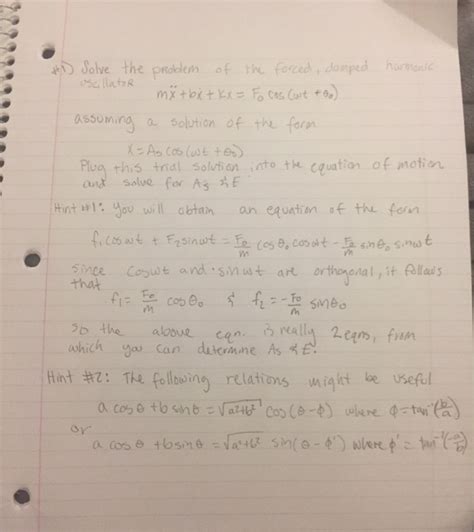 #1) Solve the problem of the forced, damped harmonic
oscillator
mẍ + bẋ + kx = F₀ cos(ωt + θ₀)
assuming a solution of the form
x = As cos(ωt + θ₀)
Plug this trial solution into the equation of motion
and solve for As & E.
Hint #1: You will obtain an equation of the form
f₁cosωt + F₂sinωt = F₀/m cosθ₀cosωt - F₀/m sinθ₀ sinωt
since cosωt and sinωt are orthogonal, it follows
that
f₁ = F₀/m cosθ₀ & f₂ = -F₀/m sinθ₀
so the above eqn. is really 2 eqns, from
which you can determine As & E.
Hint #2: The following relations might be useful
a cosθ + b sinθ = √a²+b² cos(θ-φ) where φ = tan⁻¹(b/a)
or
a cosθ + b sinθ = √a²+b² sin(θ-φ') where φ' = tan⁻¹(-a/b)